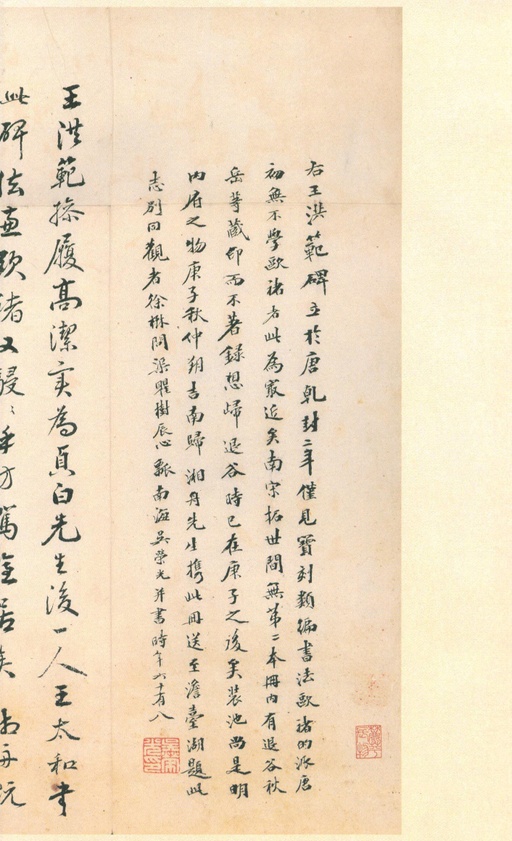 右王洪範碑立於唐乾封二年僅見寶刻類編書法歐褚的派唐
初無不學歐褚者此為最近矣南宋拓世間無第二本冊內有退谷秋
岳等藏印而不著錄想歸退谷時已在庚子之後矣裝池尚是明
內府之物庚子秋仲朔吉南歸湘舟先生攜此冊送至澹臺湖題此
志別同觀者徐楙問梁瞿樹辰心龢南海吳榮光并書時年六十有八
王洪範搽履高潔實為貞白先生後一人王太和書
此碑法兼歐褚又駸駸乎方駕